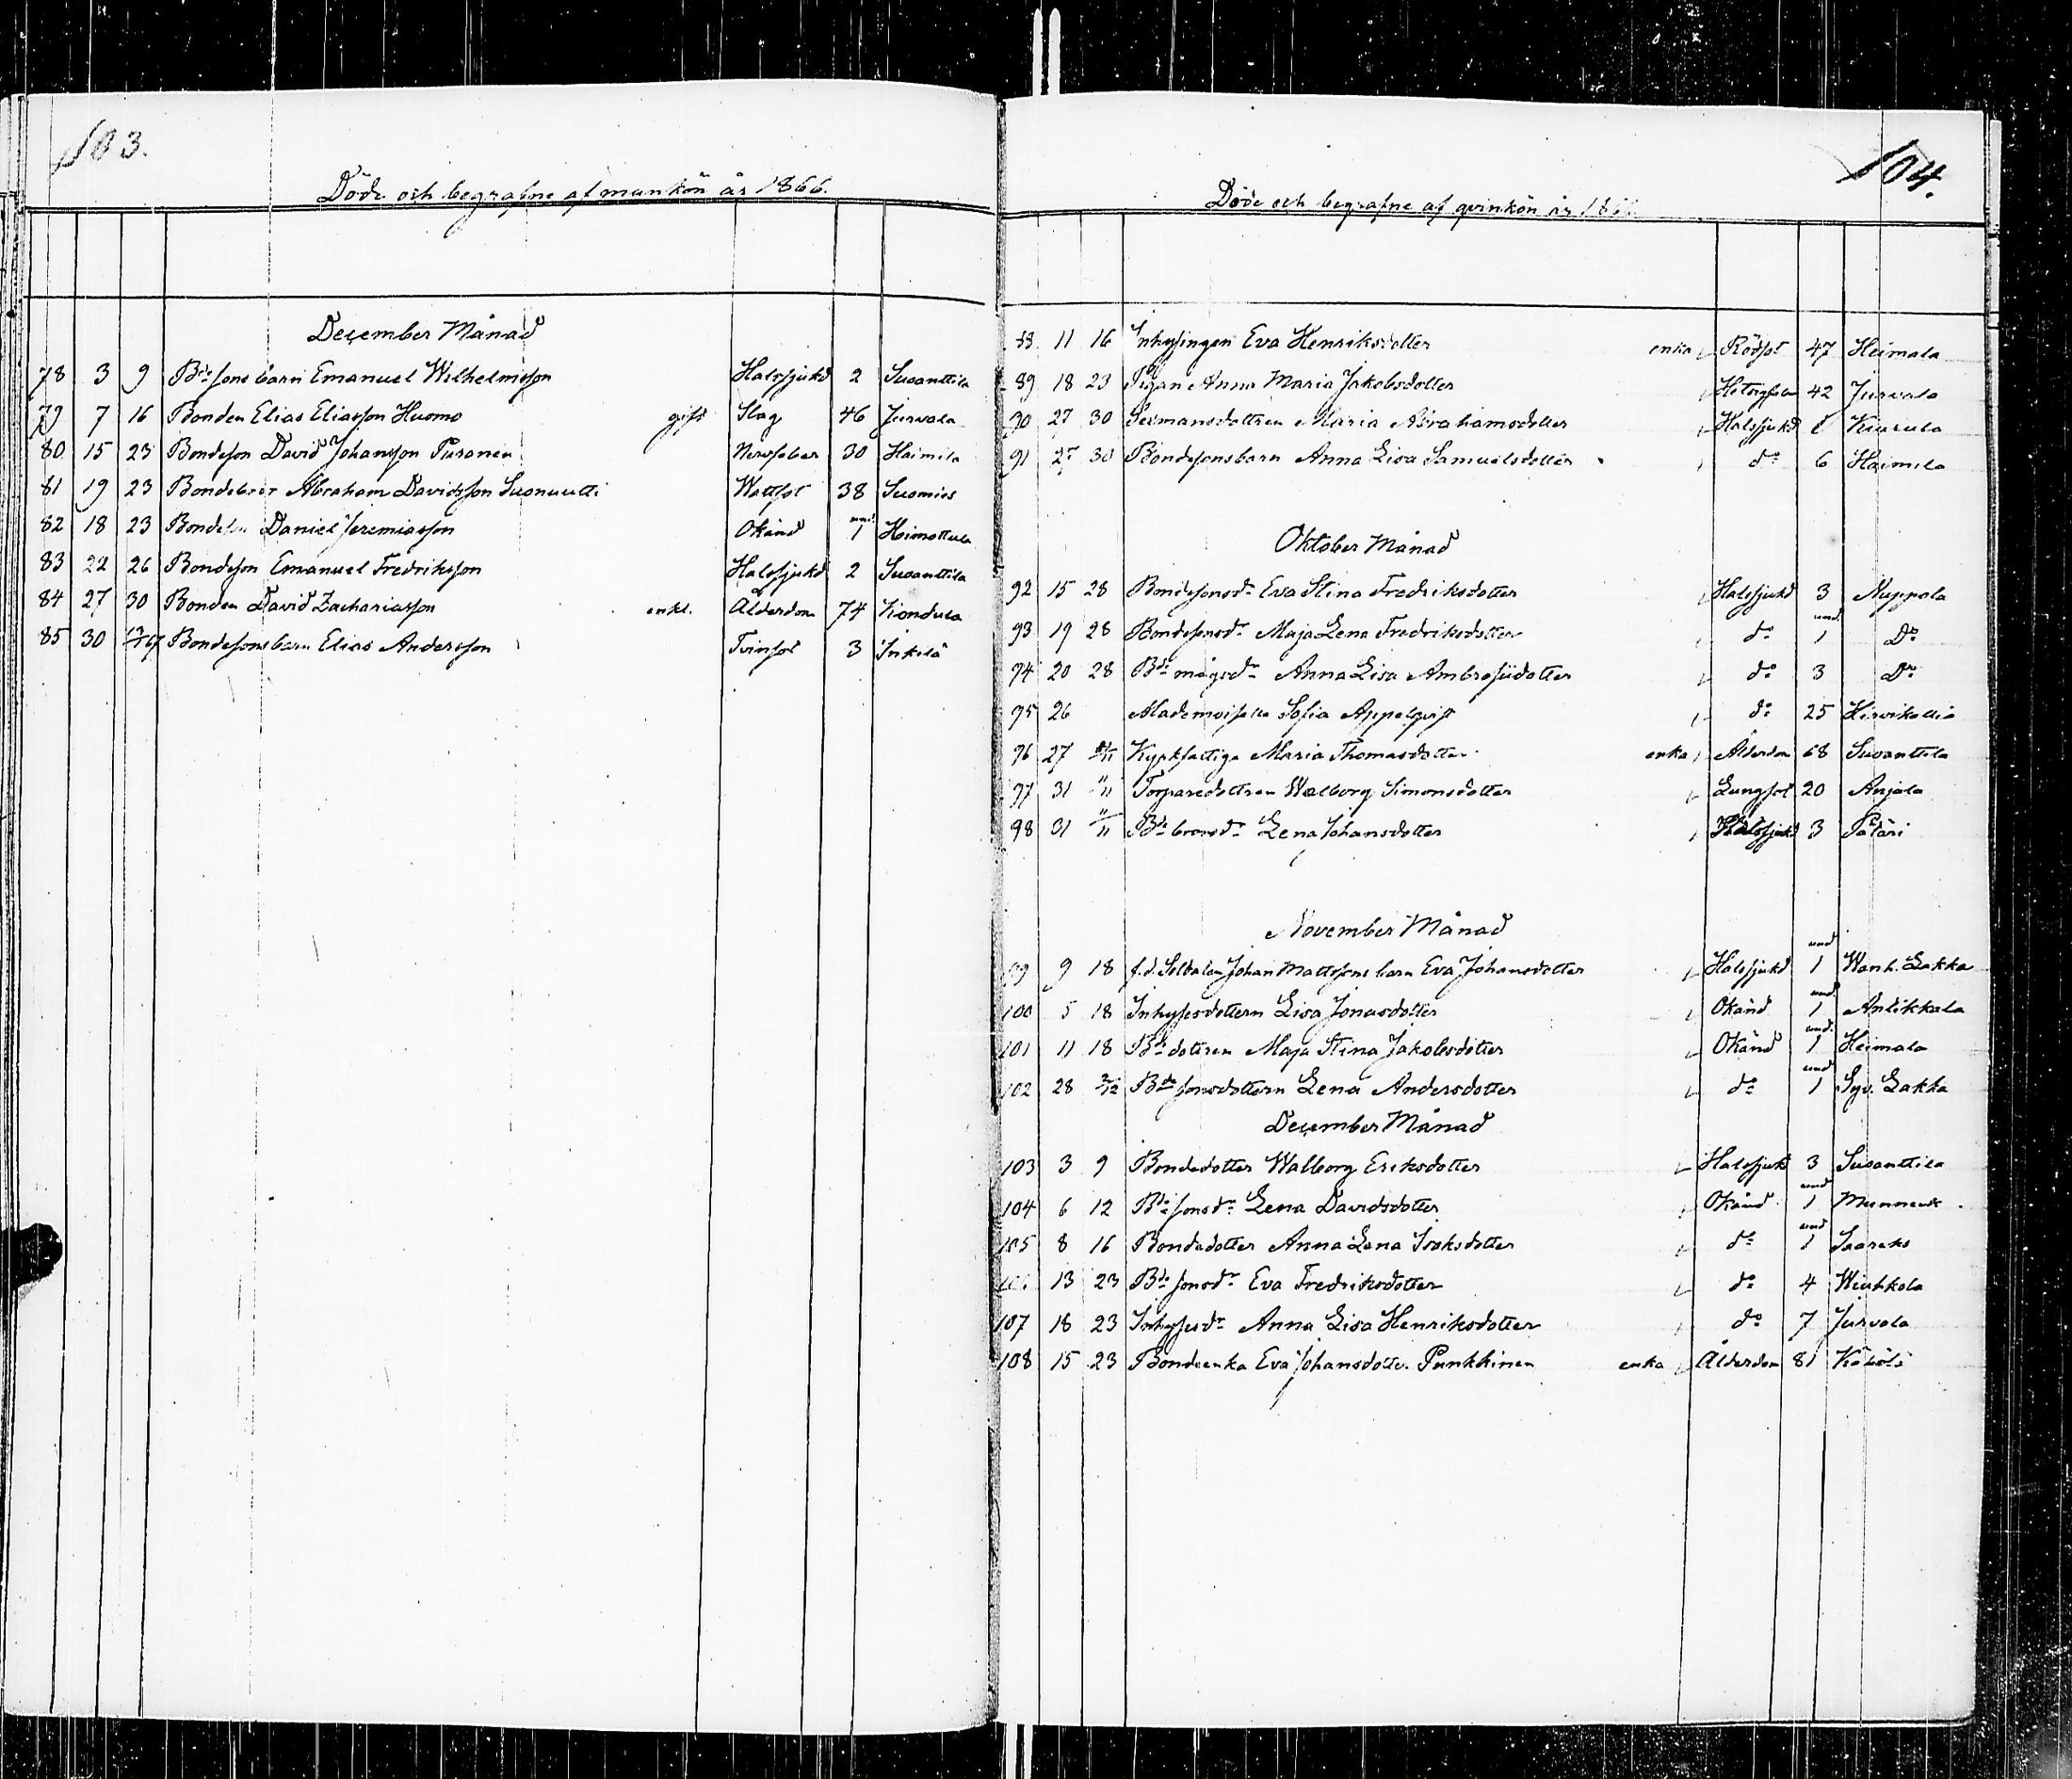 103.
Döde och begrafne af mankön år 1866.
December Månad
78 3 9 Bde sons barn Emanuel Wilhelmsson Halssjukd 2 Susanttila
79 7 16 Bonden Elias Eliasson Huomo gift Slag 46 Jurvala
80 15 23 Bondeson David Johansson Puranen Nervfeber 30 Haimila
81 19 23 Bondebror Abraham Davidsson Suonuutti Wattsot 38 Suomies
82 18 23 Daniel Jeremiasson Okänd 1 Heimottula
83 22 26 Bondeson Emanuel Fredriksson Halssjukd 2 Susanttila
84 27 30 Bonden David Zachariasson enkl. Ålderdom 74 Kondula
85 30 Bondesons barn Elias Andersson Tvinsot 3 Inkilä
104.
Döde och begrafne af qvinkön år
11 16 Inhysingen Eva Henriksdotter enka Rödsot 47 Heimala
89 18 23 Pigan Anna Maria Jakobsdotter 42 Jurvala
90 27 30 Maria Abrahamsdotter Halssjukd Kiurula
91 27 30 Bondesonsbarn Anna Lisa Samuelsdotter do 6 Haimila
Oktober Månad
92 15 28 Bondesonsdr Eva Stina Fredriksdotter Halssjukd 3 Muppola
93 19 28 Bondesonsdr Maja Lena Fredriksdotter do 1 mnd. Do
94 20 28 Bde mågsdr Anna Lisa Ambrosiidotter do 3 Do
95 26 Mademoiselle Sofia Appelqvist do 25
96 27 4/11 Kyrkfattiga Maria Thomasdotter enka Ålderdom 68 Suvanttila
97 31 "/11 Torparedottren Walborg Simonsdotter Lungsot 20 Anjala
98 31 "/11 Bde brorsdr Lena Johansdotter Halssjukd 3 Pätäri
November Månad
99 9 18 f.d. Soldaten Johan Mattssons barn Eva Johansdotter Halssjukd 1 mnd Wanh. Lakka
100 5 18 Inhysesdottern Lisa Jonasdotter Okänd 1 mnd Anlikkala
101 11 18 Bde dottren Maja Stina Jakobsdotter Okänd 1 mnd. Heimala
102 28 2/12 Bde sonsdottern Lena Andersdotter do 1 mnd Syv. Lakka
December Månad
103 3 9 Bondedotter Walborg Eriksdotter Halssjuk 3 Susanttila
104 6 12 Bde sonsdr Lena Davidsdotter Okänd 1 mnd
105 8 16 Bondedotter Anna Lena Isaksdotter do 1 mnd Saareks
13 23 Bde sonsdr Eva Fredriksdotter do 4 Wiukkola
107 18 23 Inhysesdr Anna Lisa Henriksdotter do 7 Jurvala
108 15 23 Bondeenka Eva Johansdotter Punkkinen enka Ålderdom 81